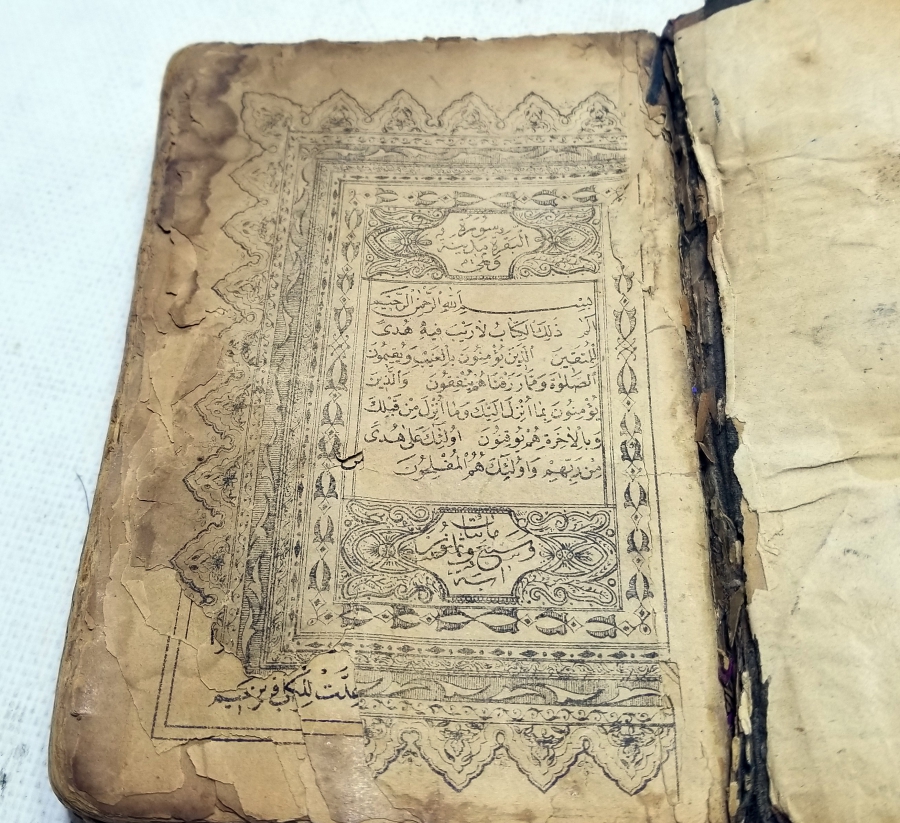 سورة
البقرة مدنية
وهي
بسم الله الرحمن الرحيم
الم ذلك الكتاب لا ريب فيه هدى
للمتقين الذين يؤمنون بالغيب ويقيمون
الصلوة ومما رزقناهم ينفقون والذين
يؤمنون بما أنزل اليك وما أنزل من قبلك
وبالاخرة هم يوقنون اولئك على هدى
من ربهم واولئك هم المفلحون
مائتان
وست وثمانون
اية